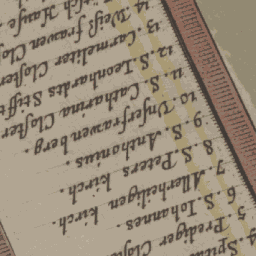 4. Spital
5. Prediger Clo
6. S. Iohannes.
7. Allerheiligen kirch.
8. S. Peters kirch.
9. S. Anthonius.
10. Vnser frawen berg.
11. S. Catharina Closter
12. S. Leonhardes Stifft
13. Carmeliter Closter
14. Weiß frawen Clo